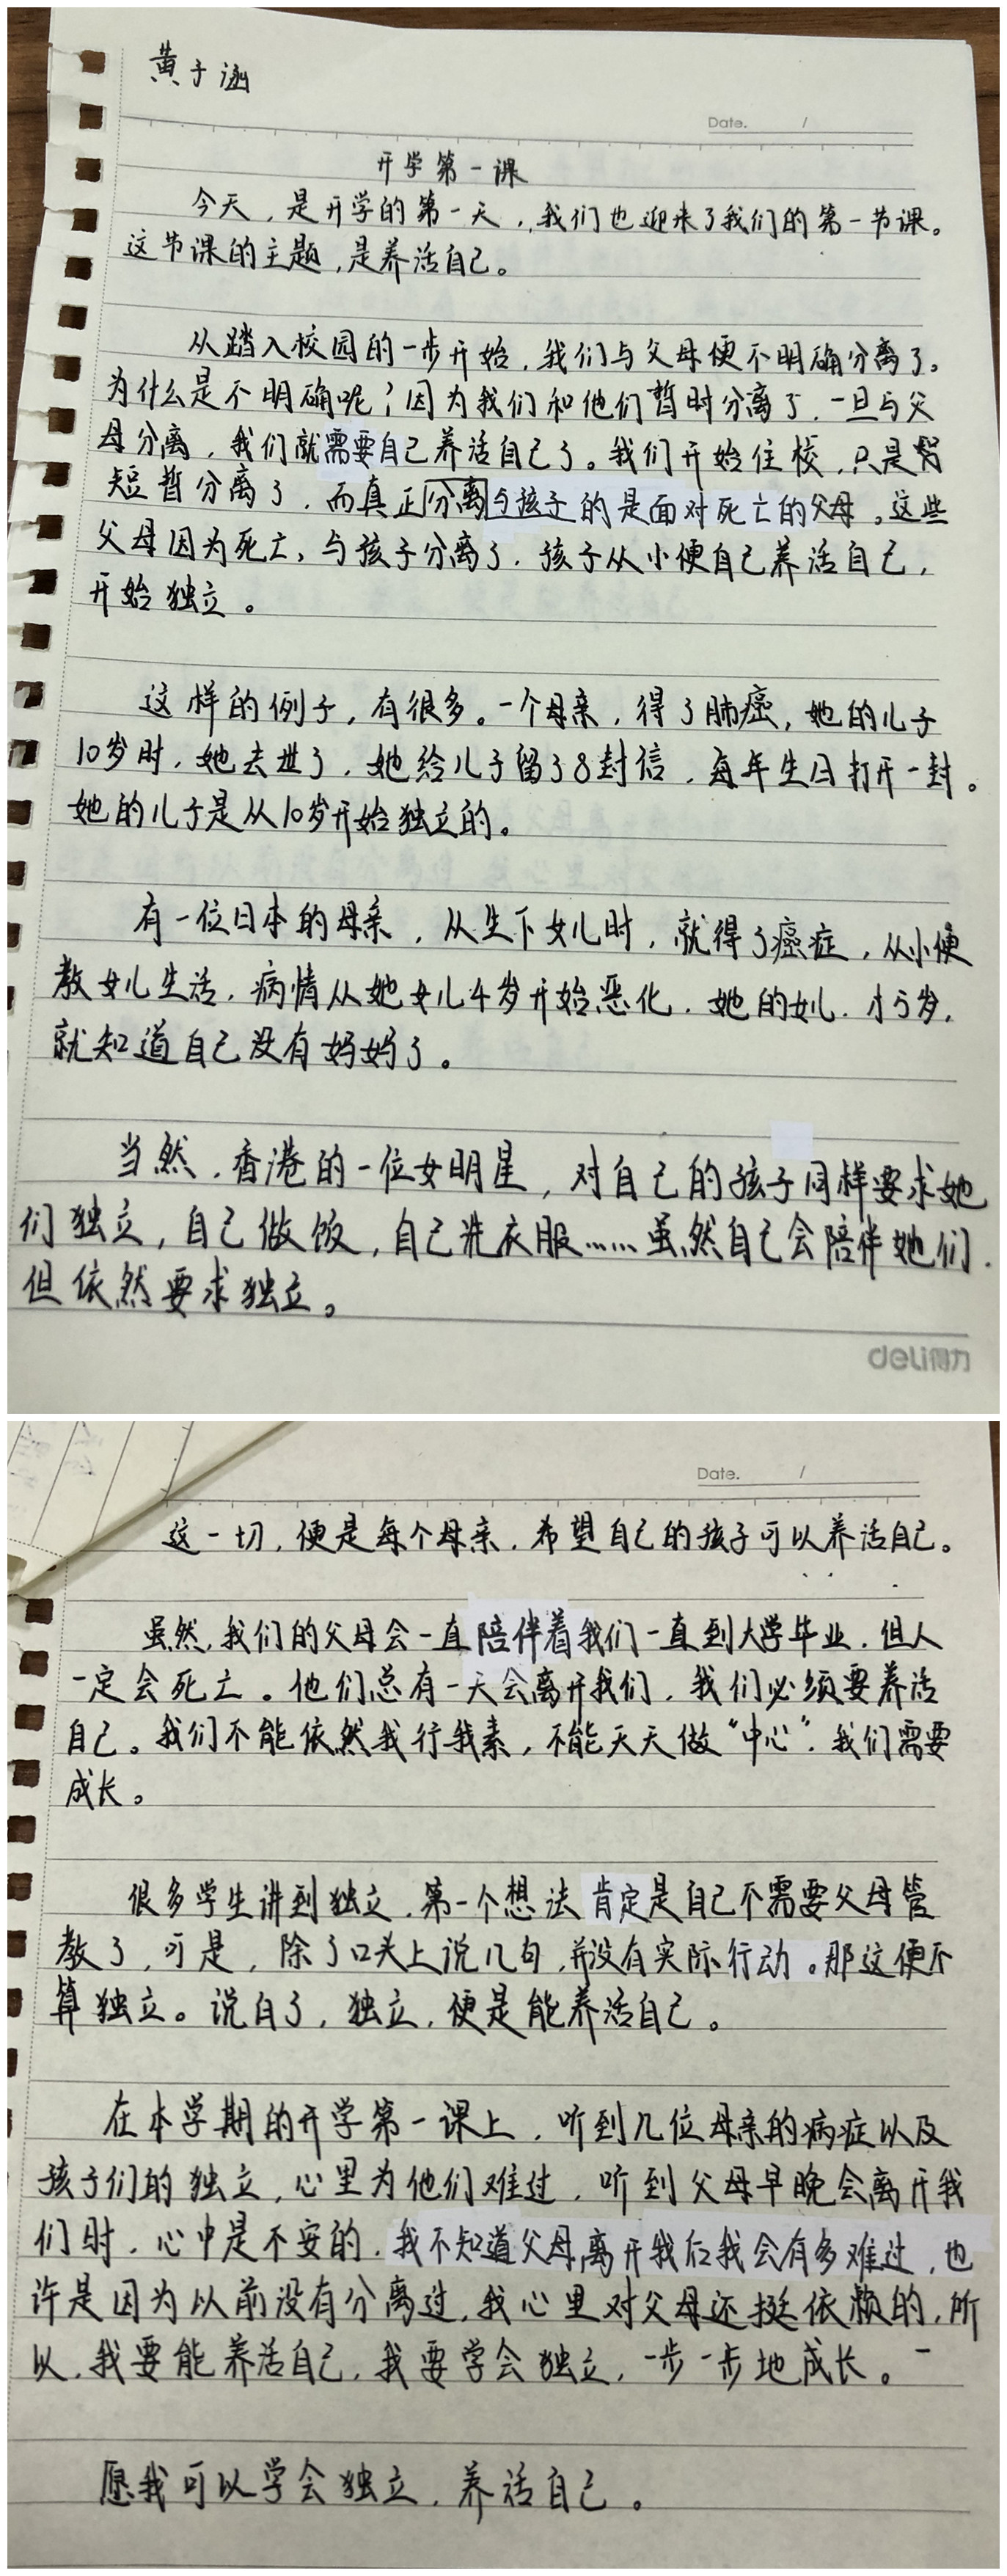 黄于涵
Date. /
开学第一课
今天，是开学的第一天，我们也迎来了我们的第一节课。
这节课的主题，是养活自己。
从踏入校园的一步开始，我们与父母便不明确分离了。
为什么是不明确呢？因为我们和他们暂时分离了，一旦与父
母分离，我们就需要自己养活自己了。我们开始住校，只是
短暂分离了，而真正分离与孩子的是面对死亡的父母。这些
父母因为死亡，与孩子分离了，孩子从小便自己养活自己，
开始独立。
这样的例子，有很多。一个母亲，得了肺癌，她的儿子
10岁时，她去世了，她给儿子留了8封信，每年生日打开一封。
她的儿子是从10岁开始独立的。
有一位日本的母亲，从生下女儿时，就得了癌症，从小便
教女儿生活，病情从她女儿4岁开始恶化，她的女儿，才5岁，
就知道自己没有妈妈了。
当然，香港的一位女明星，对自己的孩子同样要求她
们独立，自己做饭，自己洗衣服……虽然自己会陪伴她们，
但依然要求独立。
deli得力
Date. /
这一切，便是每个母亲，希望自己的孩子可以养活自己。
虽然，我们的父母会一直陪伴着我们一直到大学毕业，但人
一定会死亡。他们总有一天会离开我们，我们必须要养活
自己。我们不能依然我行我素，不能天天做“中心”，我们需要
成长。
很多学生讲到独立，第一个想法肯定是自己不需要父母管
教了，可是，除了口头上说几句，并没有实际行动。那这便不
算独立。说白了，独立，便是能养活自己。
在本学期的开学第一课上，听到几位母亲的病症以及
孩子们的独立，心里为他们难过，听到父母早晚会离开我
们时，心中是不安的，我不知道父母离开我后我会有多难过，也
许是因为以前没有分离过，我心里对父母还挺依赖的，所
以，我要能养活自己，我要学会独立，一步一步地成长。
愿我可以学会独立，养活自己。